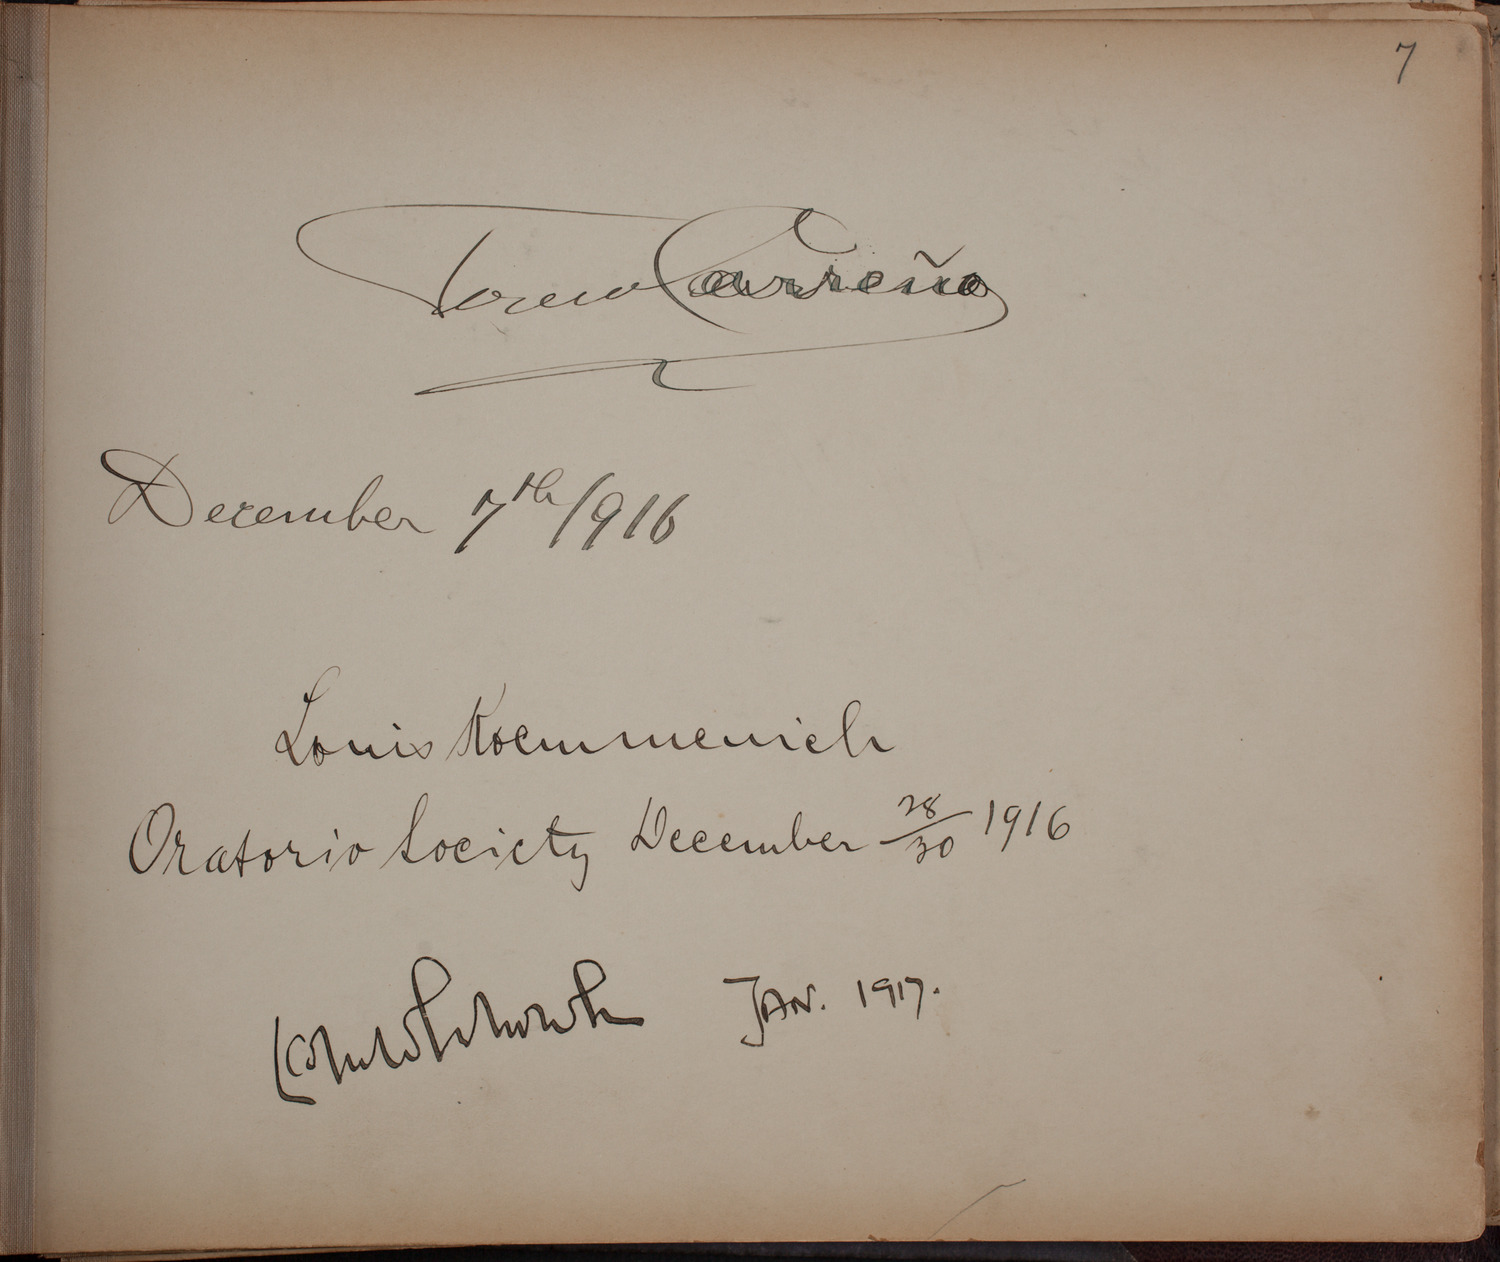 7
Teresa Carreño
December 7th/916
Louis Koemmenich
Oratorio Society December 28/30 1916
Leopold Stokowski JAN. 1917.